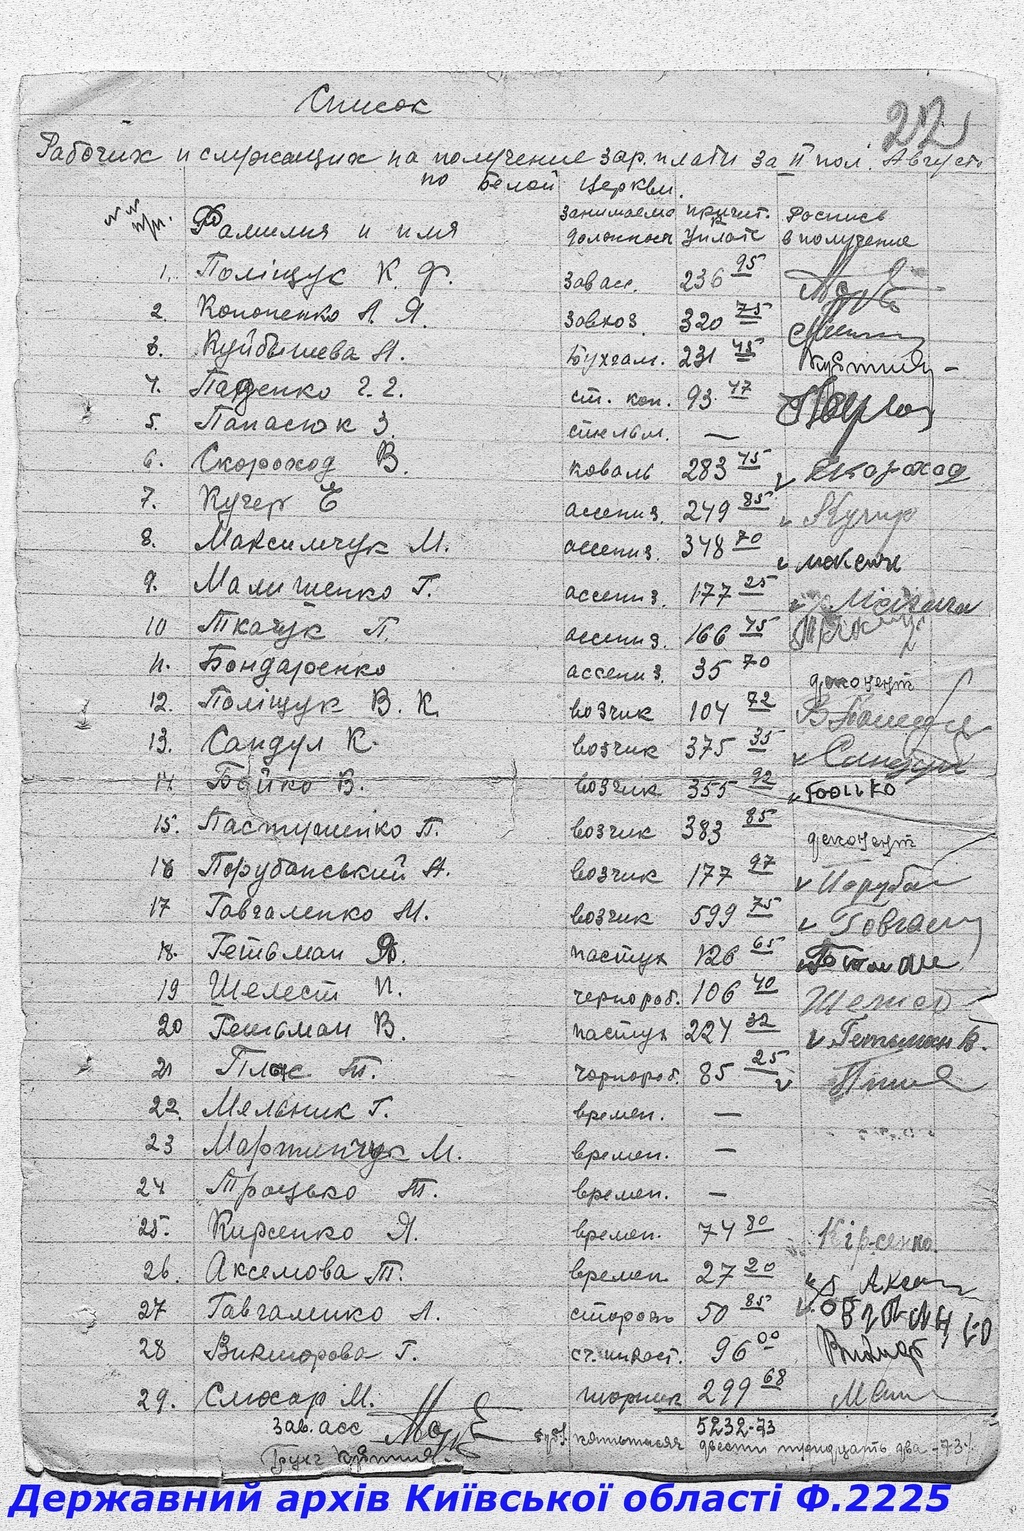 Список
22
Рабочих и служащих на получение зар.плати за II пол. Августа
по Белой Церкви.
№№ п/п. Фамилия и имя занимаемо должность причит. к уплате Роспись в получение
1. Поліщук К. Ф. зав асс. 236 95
2. Кононенко А. Я. завхоз. 320 75
3. Куйбишева Н. бухгал. 231 45
4. Паценко Г. Г. ст. кон. 93 47
5. Панасюк З. стельм. —
6. Скороход В. коваль 283 45 Скороход
7. Кучер Є ассениз. 249 85 Кучер
8. Максимчук М. ассениз. 348 70
9. Малишенко Г. ассениз. 177 25
10 Ткачук П. ассениз. 166 45
11. Бондаренко ассениз. 35 70 депонент
12. Поліщук В. К. возчик 104 72
13. Сандул К. возчик 375 35 Сандул
14 Бойко В. возчик 355 92
15. Пастушенко П. возчик 383 85 депонент
16 Порубанський А. возчик 177 97
17 Гавгаленко М. возчик 599 75
18. Гетьман Я. пастух 126 65
19 Шелест И. чернороб. 106 40 Шелест
20 Гетьман В. пастух 224 32 Гетьман В.
21 чорнороб. 85 25
22. Мельник Г. времен. —
23 Мартинчук М. времен. —
24 Троцько Т. времен. —
25. Кирсенко Я. времен. 74 80 Кірсенко
26. Аксемова Т. времен. 27 20
27 Гавгаленко А. сторож 50 85
28 Викторова Г. 96 00
29. Слюсар М. шорник 299 68
5232-73
зав. асс пятьтисяч двести тридцать два -73к
Державний архів Київської області Ф.2225